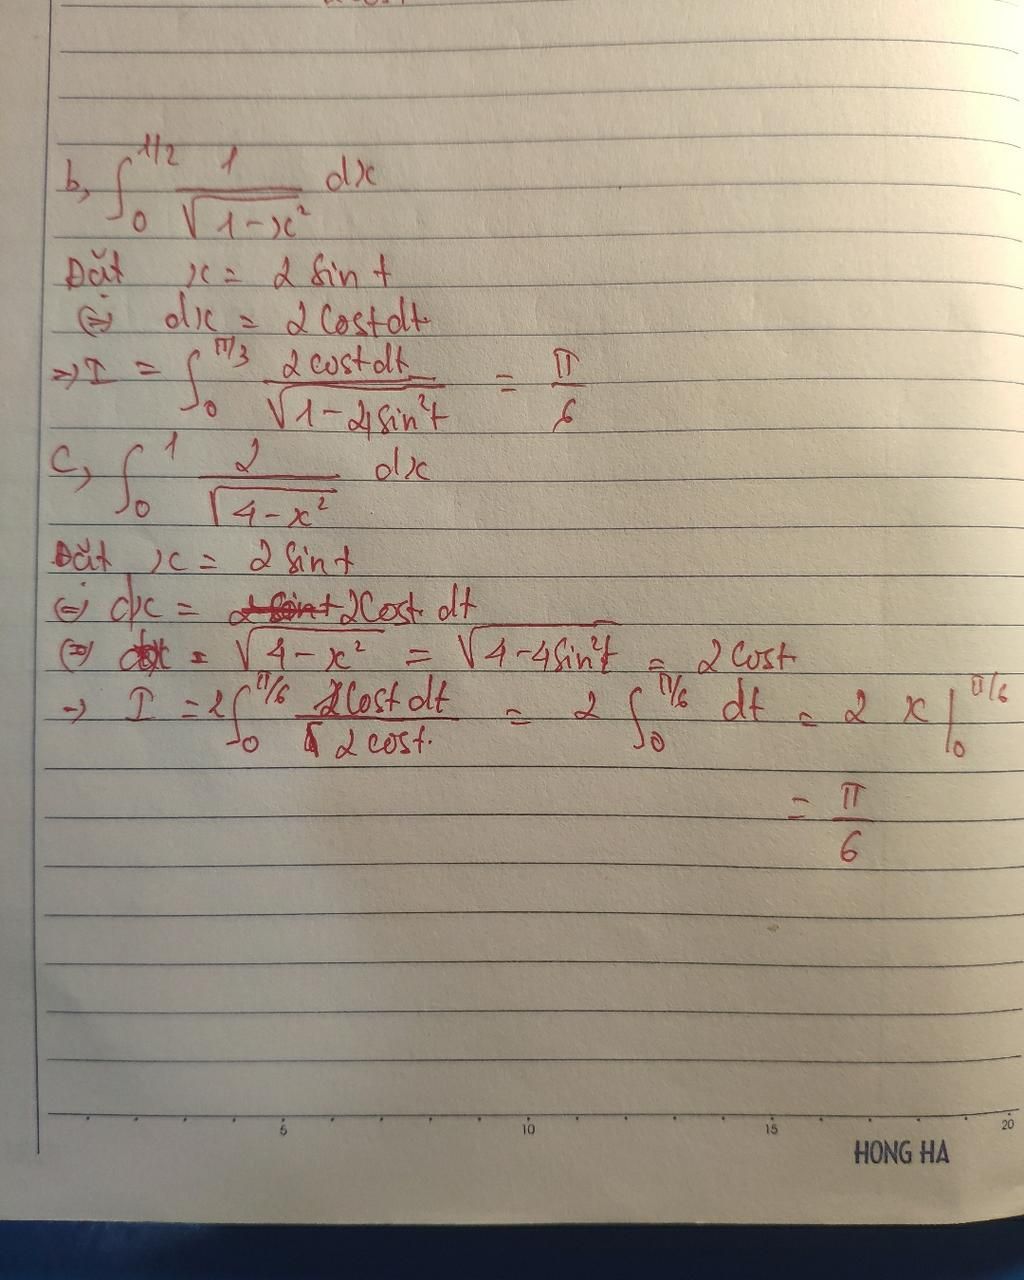 b, ∫₀^1/2 1/√(1-x²) dx
Đặt x = 2 sin t
(=) dx = 2 cos t dt
=> I = ∫₀^π/3 2 cos t dt / √(1-4 sin²t) = π/6
c, ∫₀^1 2/√(4-x²) dx
Đặt x = 2 sin t
(=) dx = 2 cos t dt
(=) √(4-x²) = √(4-4 sin²t) = 2 cos t
-> I = 2 ∫₀^π/6 2 cos t dt / 2 cos t. = 2 ∫₀^π/6 dt = 2 x |₀^π/6
= π/6
5 10 15 20
HONG HA